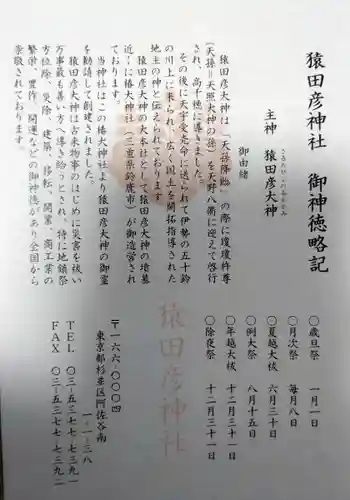 猿田彦神社　御神徳略記
主神　猿田彦大神
さるたひこのおおかみ
御由緒
猿田彦大神は「天孫降臨」の際に瓊瓊杵尊
（天孫＝天照大神の孫）を天野八衢に迎えて啓行
され、高千穂に導きました。
その後に天宇受売命に送られて伊勢の五十鈴
の川上に来られ、広く国土を開拓指導された
地主の神と伝えられております。
猿田彦大神の大本社として大本神の墳墓
近くに椿大神社（三重県鈴鹿市）が御造営され
ております。
当神社はこの椿大神社より猿田彦大神の御霊
を勧請して創建されました。
猿田彦大神は古来物事のはじめに災害を祓い
万事最も善い方へ導き給うとされ、特に地鎮祭
方位除、災除、建築、移転、開業、商工業の
繁栄、豊作、開運などの御神徳があり全国から
崇敬されております。
○歳旦祭　一月一日
○月次祭　毎月八日
○夏越大祓　六月三十日
○例大祭　八月十五日
○年越大祓　十二月三十一日
○除夜祭　十二月三十一日
猿田彦神社
〒一六六－〇〇〇四
東京都杉並区阿佐谷南
一－一－三八
ＴＥＬ　〇三－五三七七－七三九一
ＦＡＸ　〇三－五三七七－七三九二